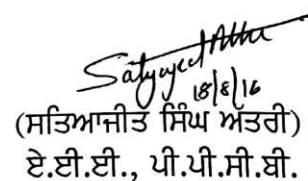 Satyajeet Attri
18/8/16
(ਸਤਿਆਜੀਤ ਸਿੰਘ ਅੱਤਰੀ)
ਏ.ਈ.ਈ., ਪੀ.ਪੀ.ਸੀ.ਬੀ.